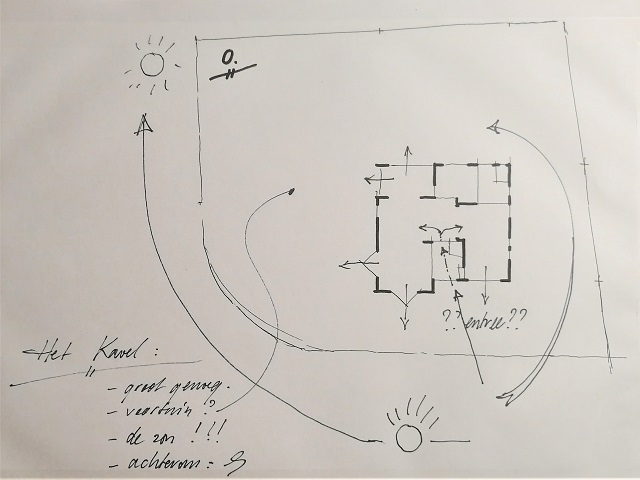 0.
?? entree??
Het Kavel :
- groot genoeg.
- voortuin ?
- de zon !!!
- achterom :